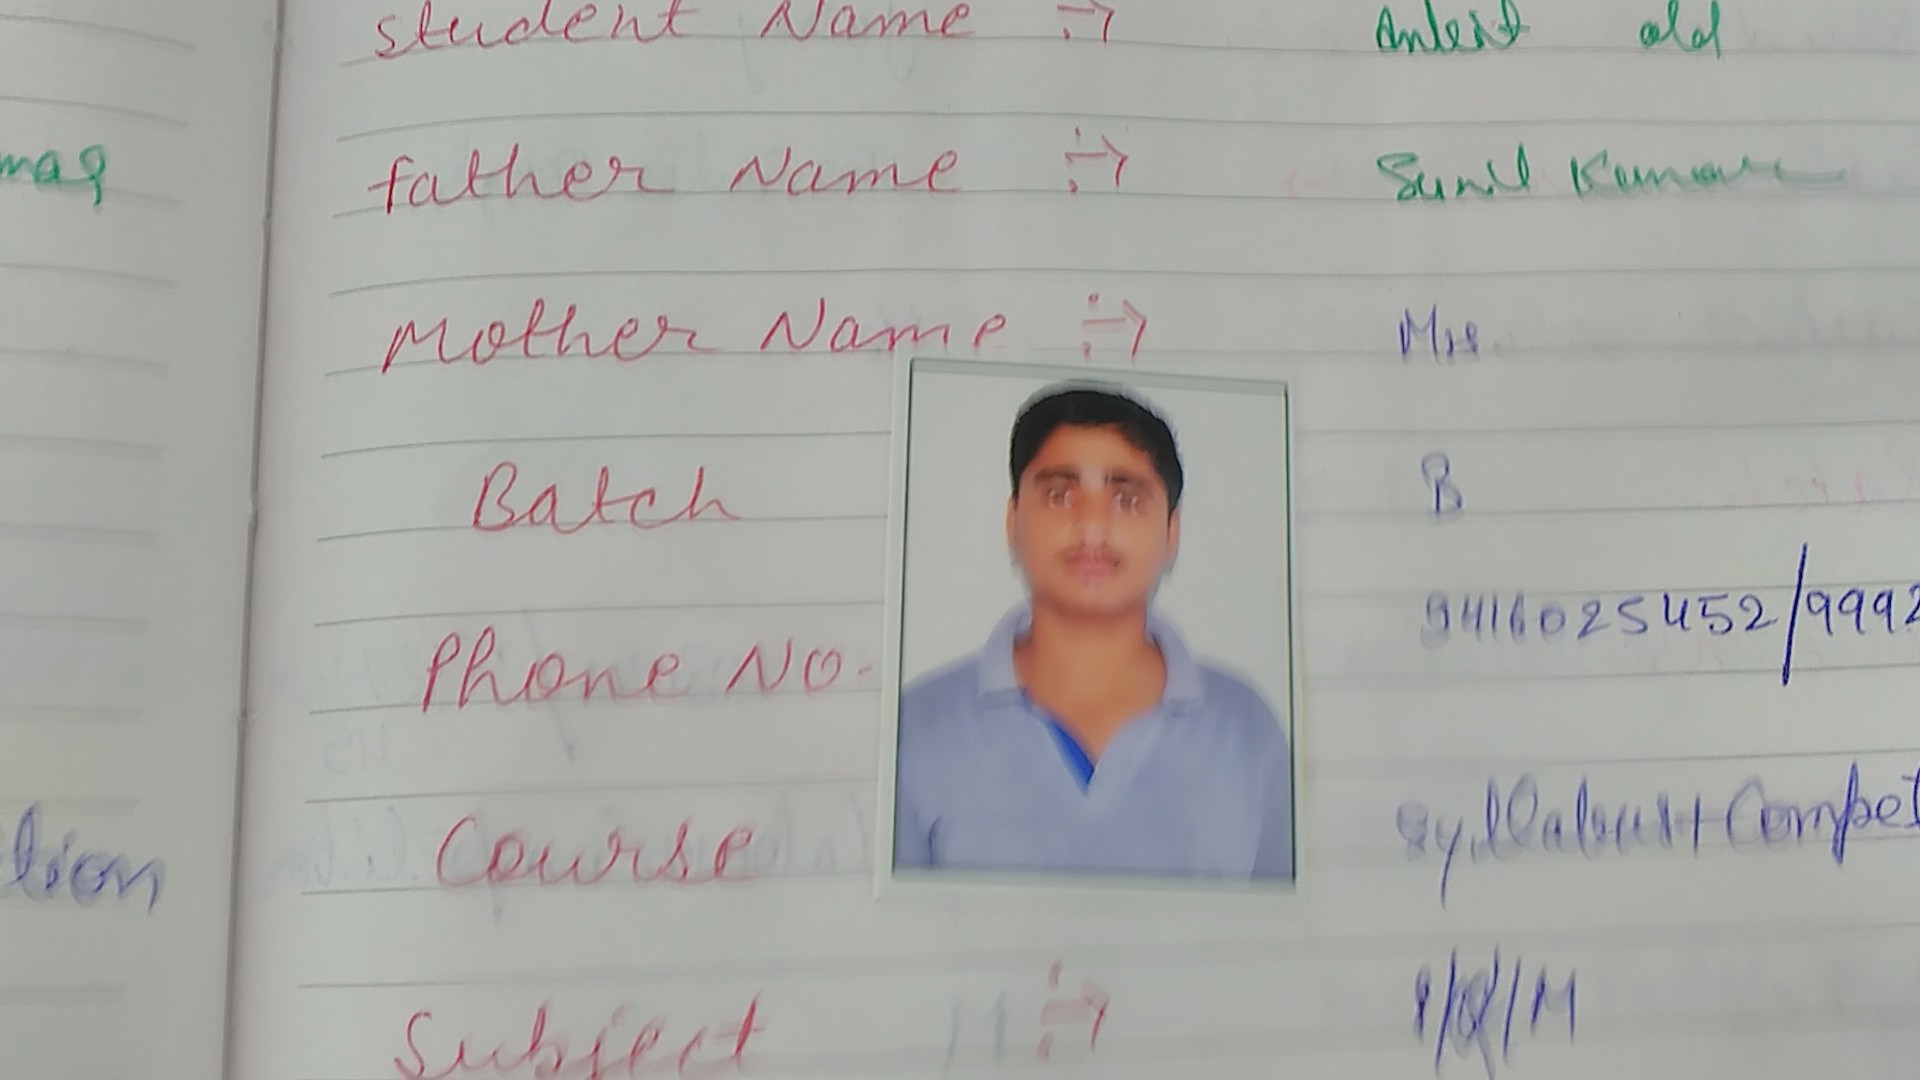 student Name
father Name Sunil Kumar
Mother Name Mrs.
Batch B
Phone No. 9416025452/9992
Course Syllabus+Compet
Subject